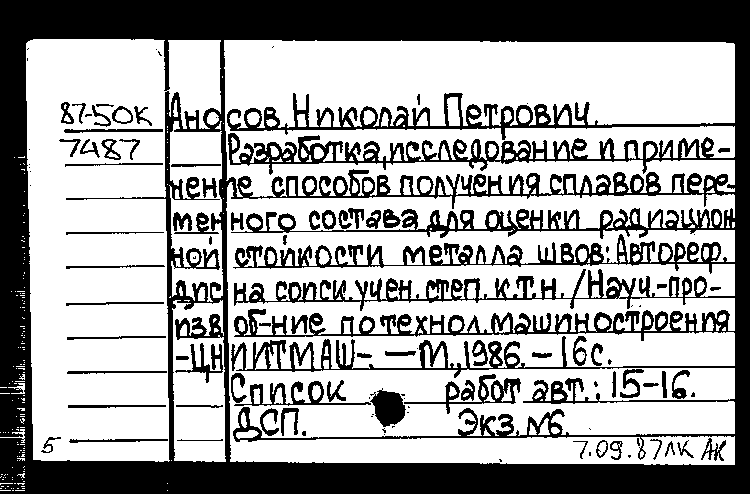 87-50К Аносов, Николай Петрович.
7487 Разработка, исследование и приме-
нение способов получения сплавов пере-
менного состава для оценки радиацион
ной стойкости металла швов: Автореф.
дис на соиск. учен. степ. к.т.н. / Науч.-про-
изв об-ние по технол. машиностроения
-ЦНИИТМАШ-. — М., 1986. - 16с.
Список работ авт.: 15-16.
ДСП. Экз. №6.
5 7.09.87 ЛК АК